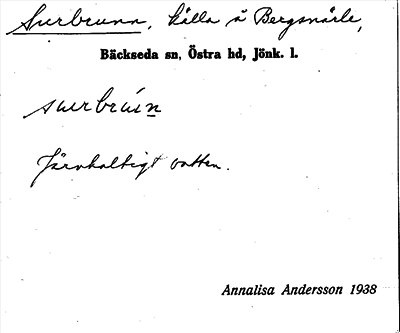 Surbrunn, källa å Bergsnärle,
Bäckseda sn, Östra hd, Jönk. l.
surbrún
Järnhaltigt vatten.
Annalisa Andersson 1938